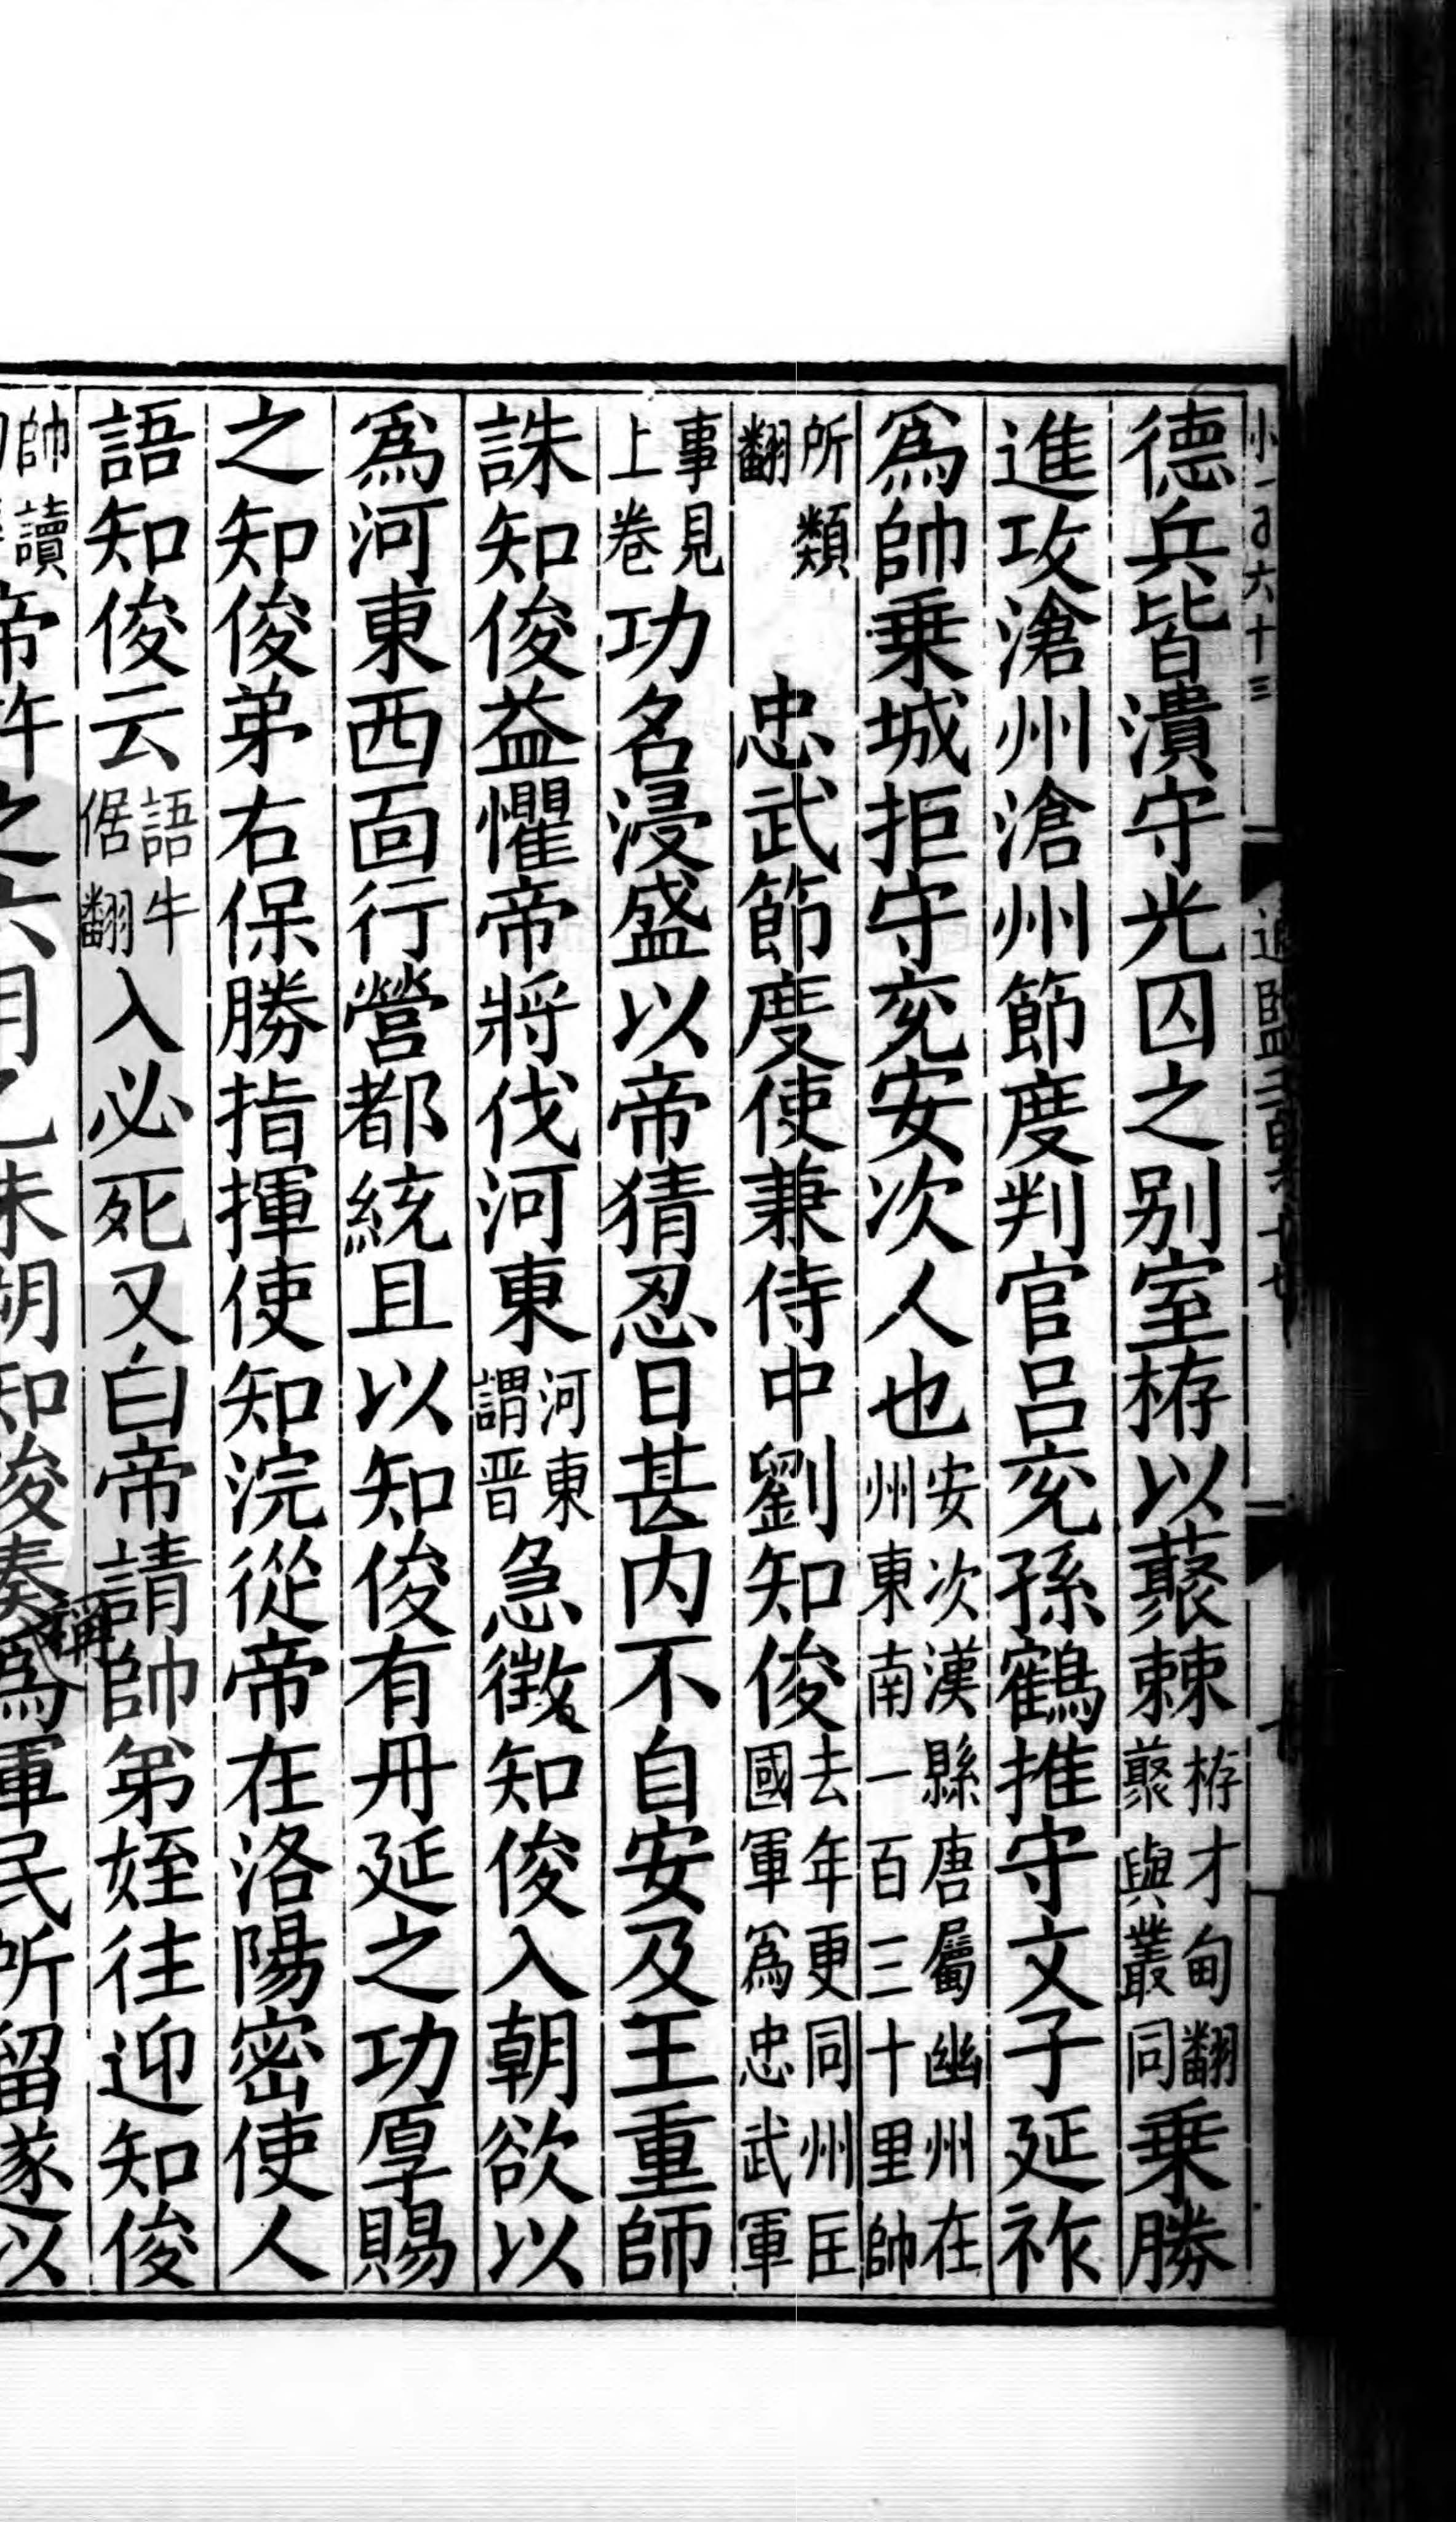 德兵皆潰守光囚之别室栫以蘩棘栫才甸翻蘩與叢同乗勝
進攻滄州滄州節度判官吕兖孫鶴推守文子延祚
爲帥乗城拒守兖安次人也安次漢縣唐屬幽州在州東南一百三十里帥
所類翻忠武節度使兼侍中劉知俊去年更同州匡國軍爲忠武軍
事見上卷功名浸盛以帝猜忍日甚内不自安及王重師
誅知俊益懼帝將伐河東河東謂晋急徵知俊入朝欲以
爲河東西面行營都統且以知俊有丹延之功厚賜
之知俊弟右保勝指揮使知浣從帝在洛陽密使人
語知俊云語牛倨翻入必死又白帝請帥弟姪往迎知俊
帥讀帝許之六月乙未朔知俊奏爲軍民所留遂以
稱